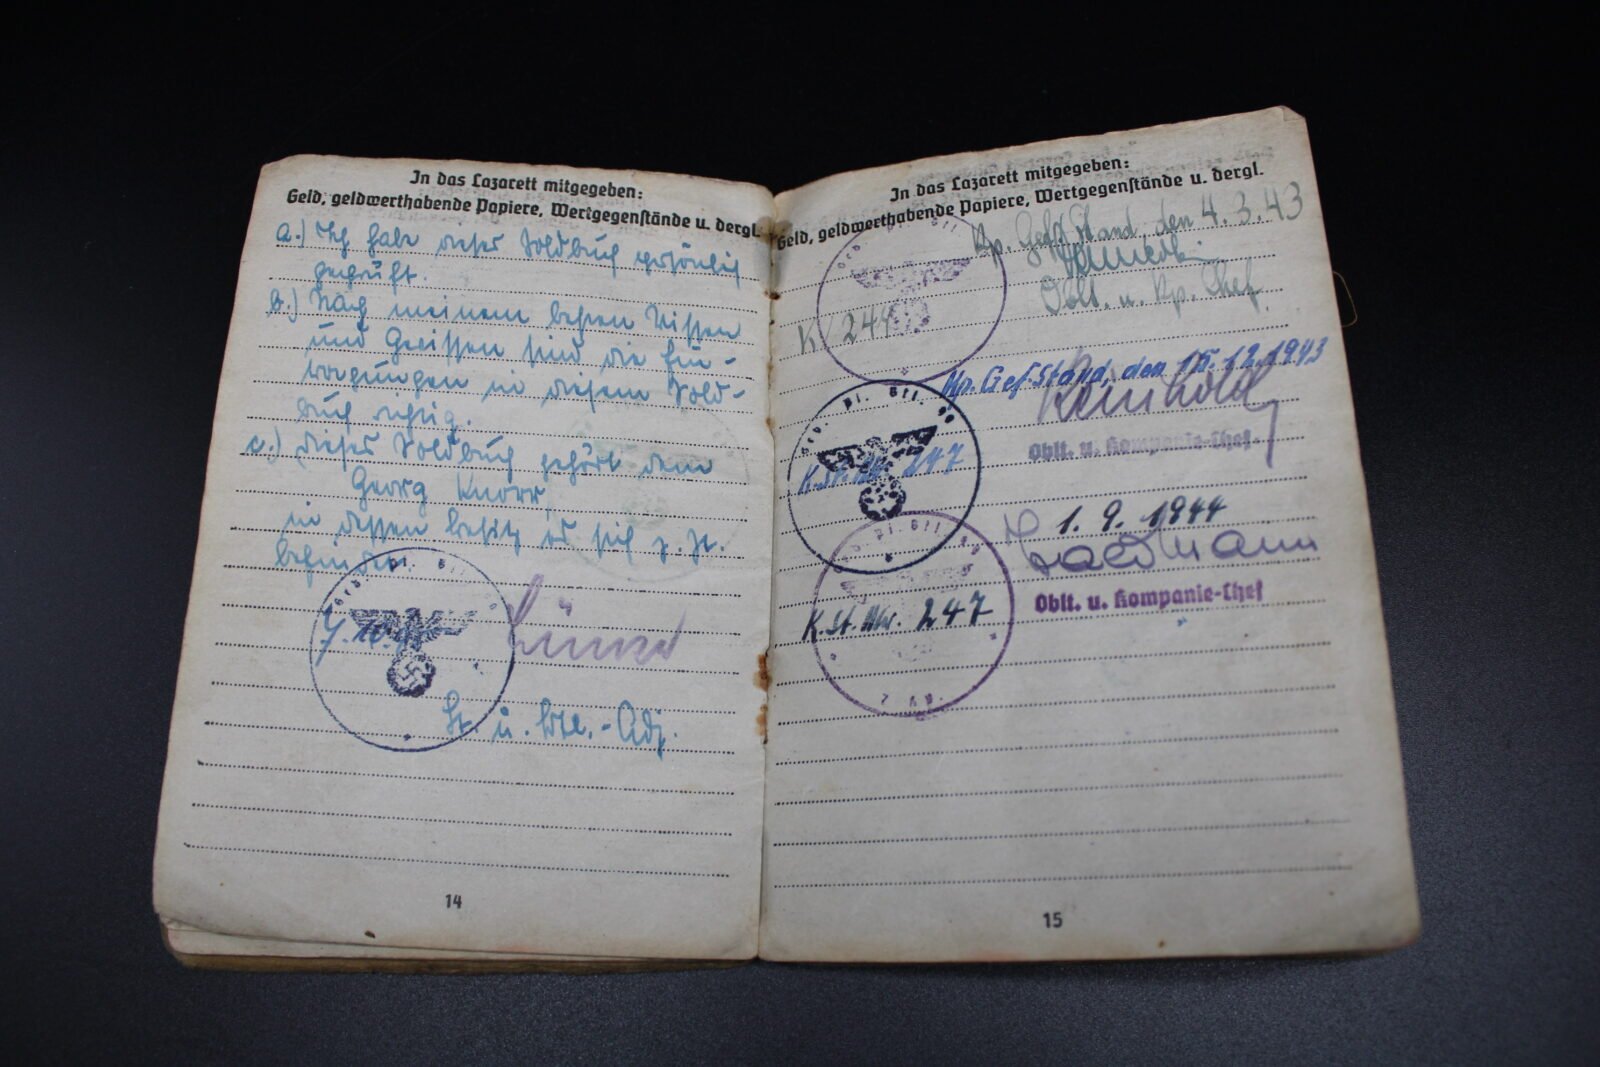 In das Lazarett mitgegeben:
Geld, geldwerthabende Papiere, Wertgegenstände u. dergl.
a.) Ich habe dieses Soldbuch persönlich
geprüft.
b.) Nach meinem besten Wissen
und Gewissen sind die Ein-
tragungen in diesem Sold-
buch richtig.
c.) Dieses Soldbuch gehört dem
Georg Knorr,
in dessen Besitz es sich z. Zt.
befindet.
Lt. u. Btl.-Adj.
14
In das Lazarett mitgegeben:
Geld, geldwerthabende Papiere, Wertgegenstände u. dergl.
Kp. Gef. Stand, den 4.3.43
Oblt. u. Kp. Chef
K 244
Kp. Gef. Stand, den 15.12.1943
Reinhold
Oblt. u. Kompanie-Chef
K. St. Nr. 247
1.9.1944
Oblt. u. Kompanie-Chef
K. St. Nr. 247
15